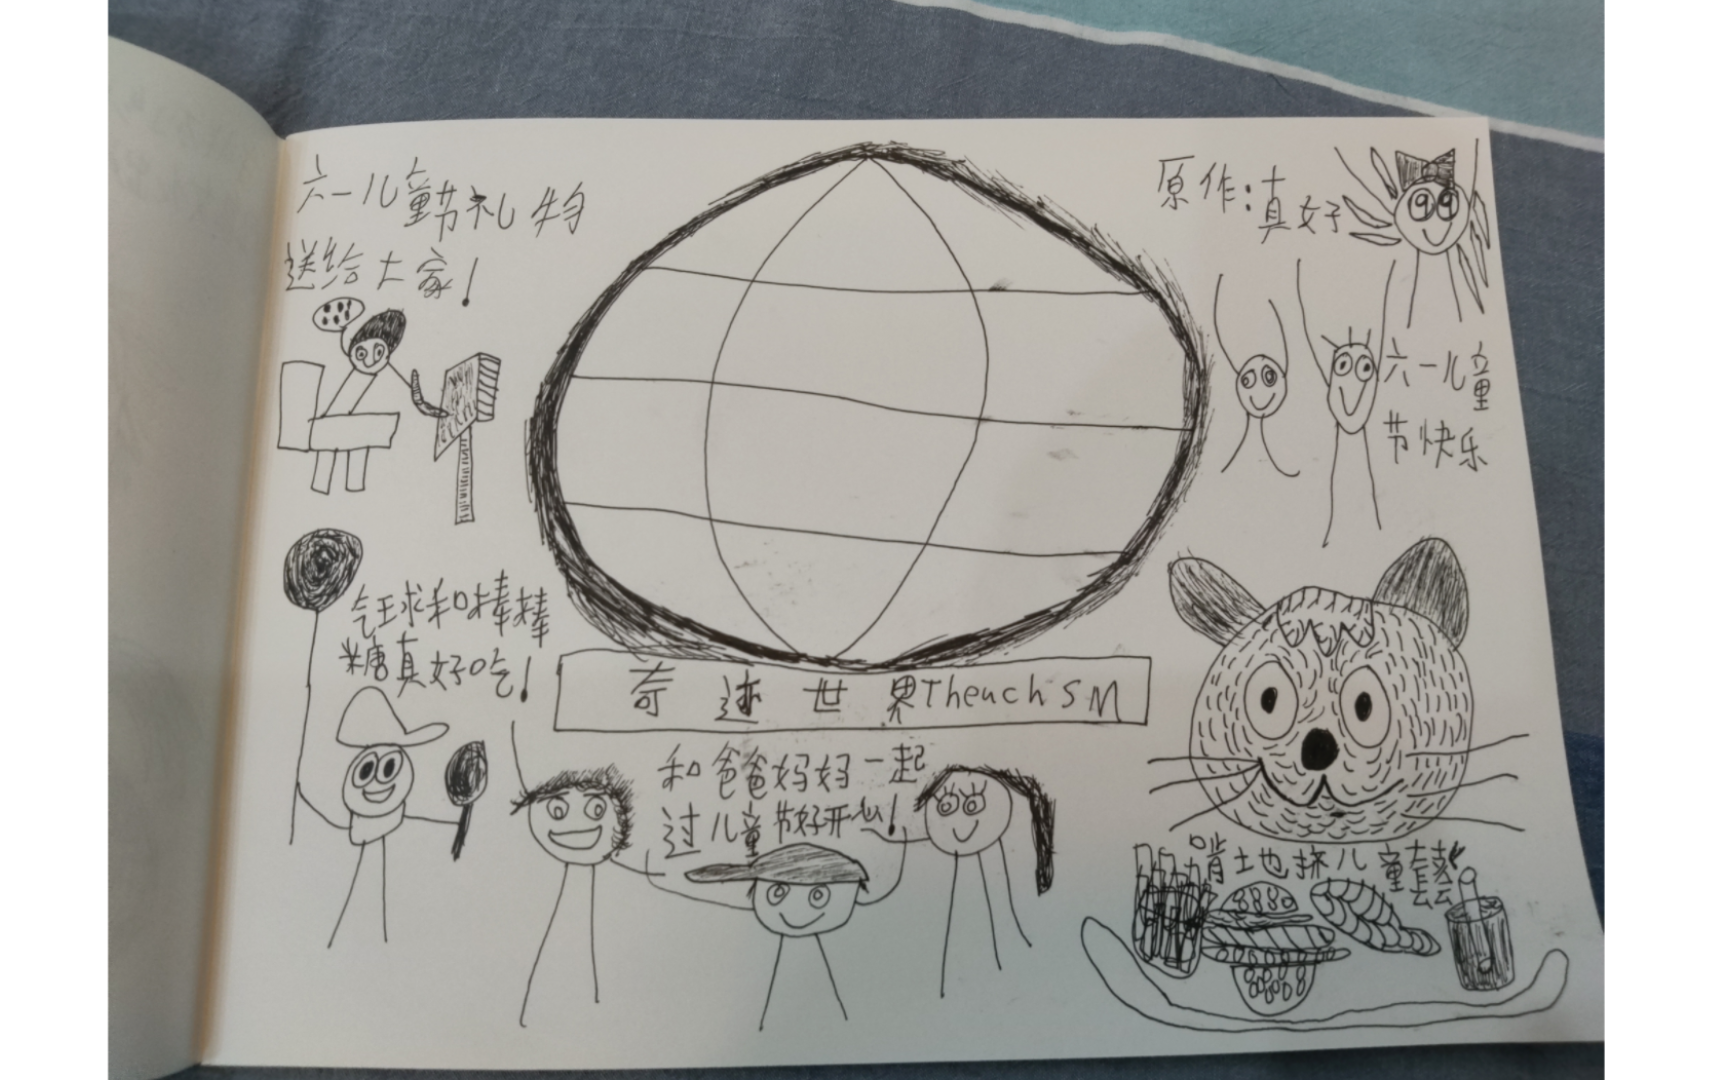 六一儿童节礼物
送给大家!
原作:真好
六一儿童
节快乐
气球和棒棒
糖真好吃!
奇迹世界TheuchSM
和爸爸妈妈一起
过儿童节好开心!
啃土地挤儿童套